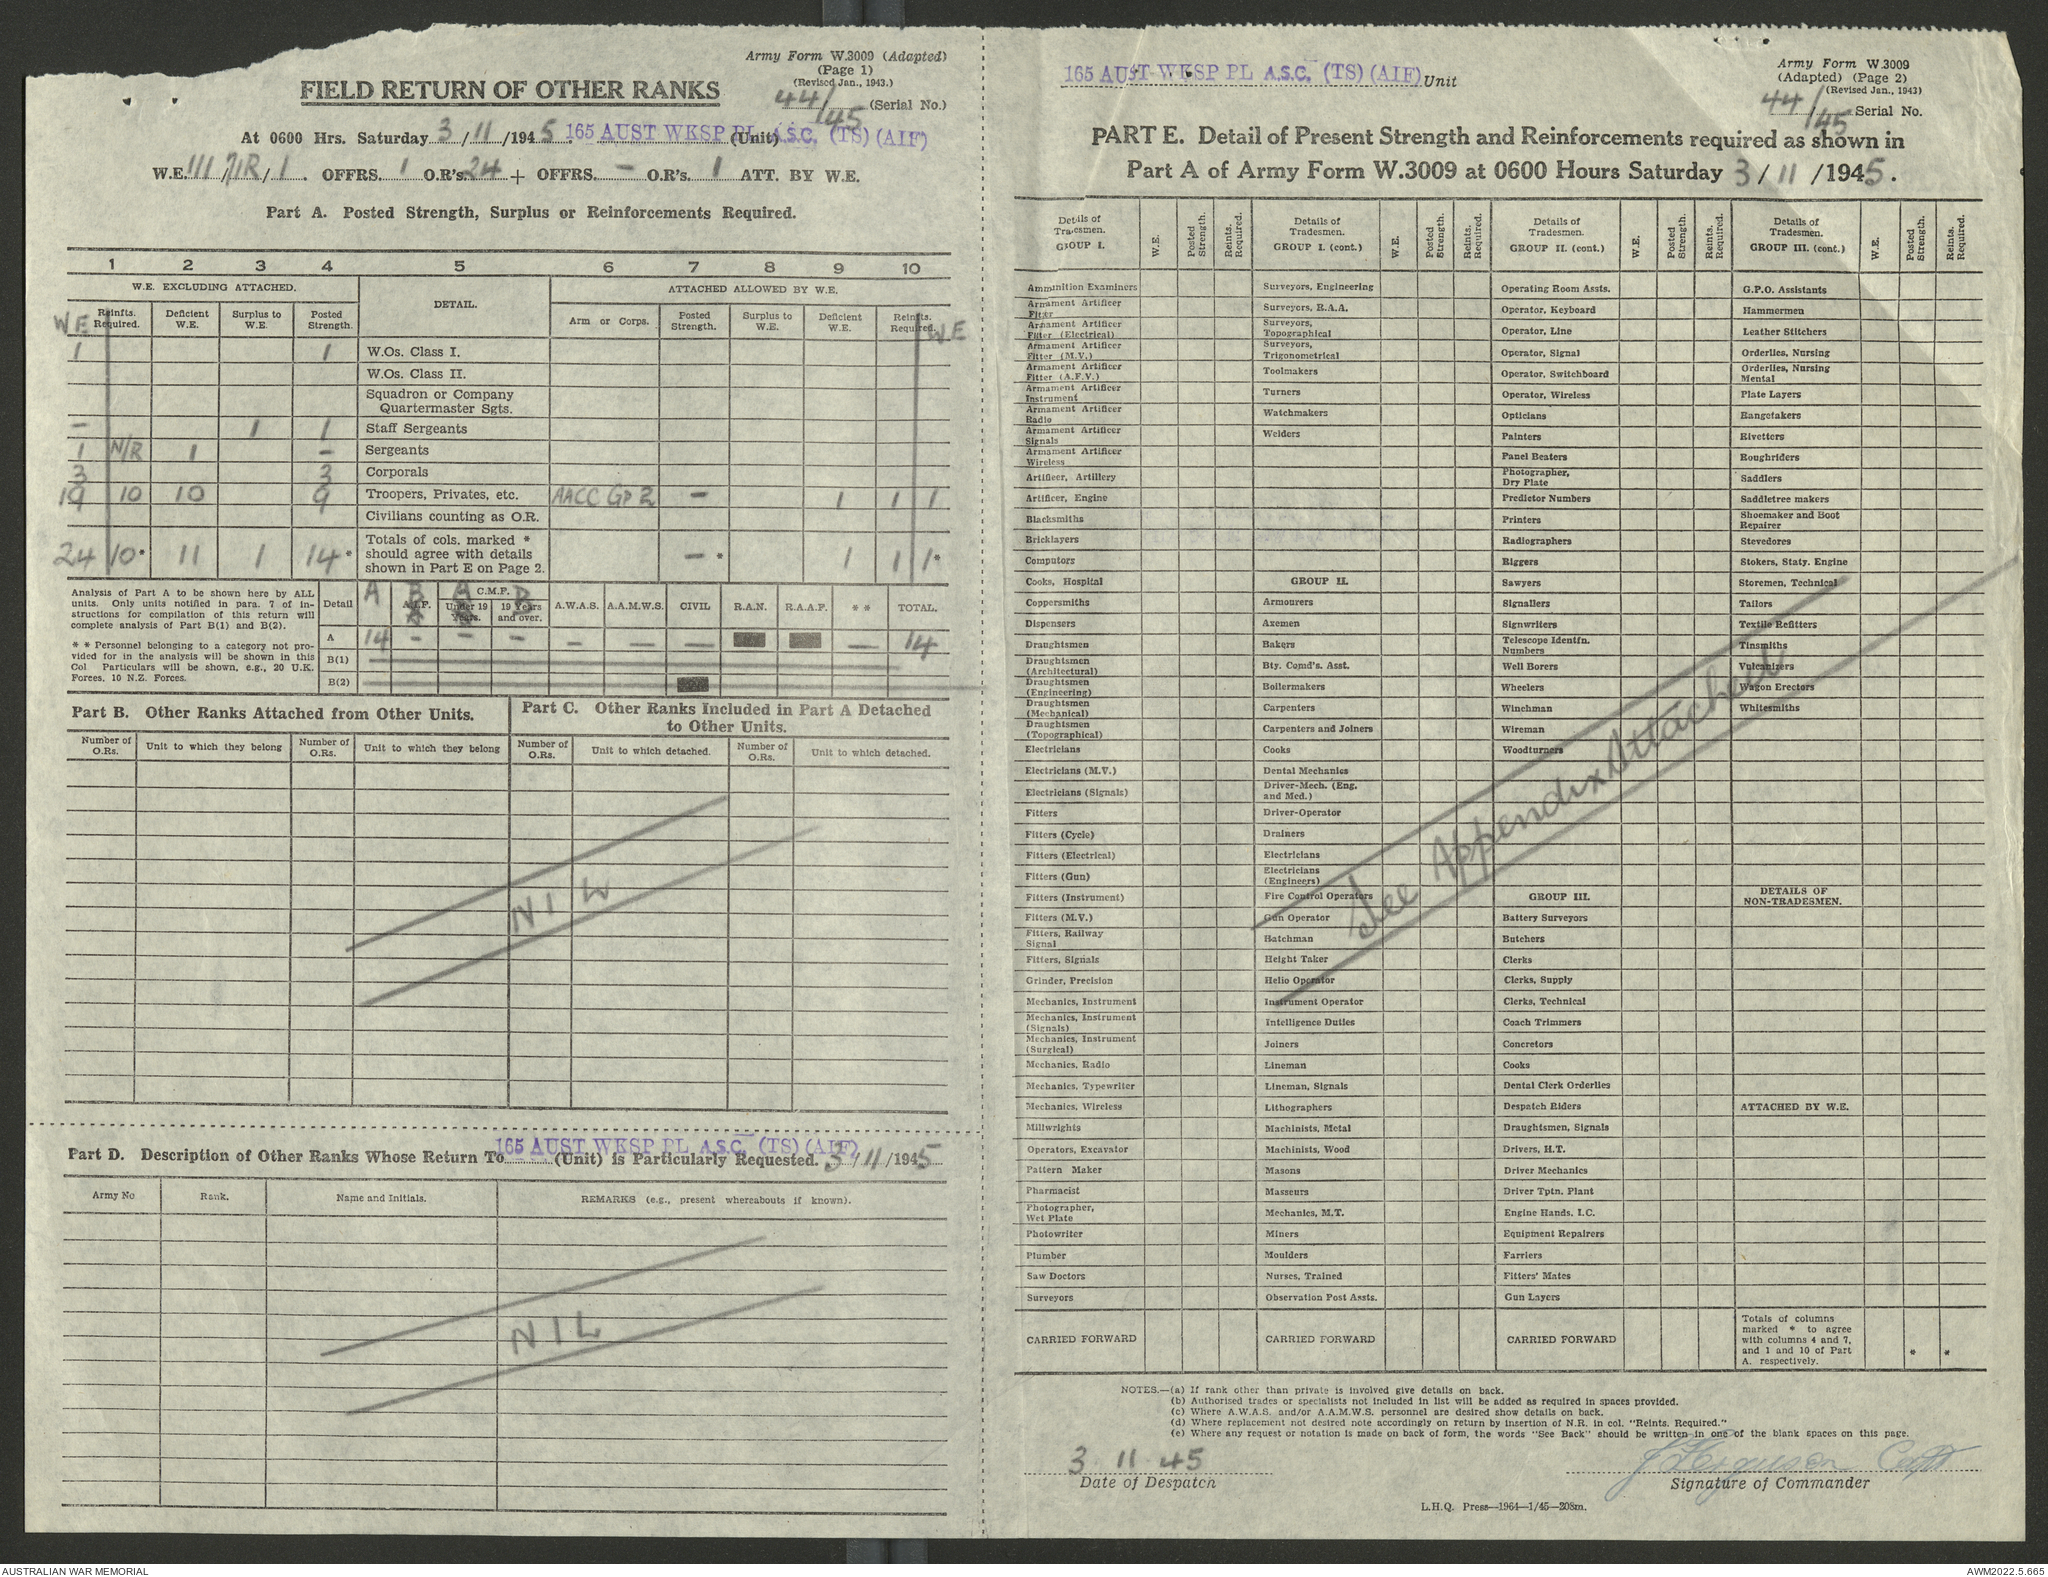 Army Form W.3009 (Adapted)
(Page 1)
(Revised Jan., 1943.)
FIELD RETURN OF OTHER RANKS
44/45 (Serial No.)
At 0600 Hrs. Saturday 3/11/1945. 165 AUST WKSP PL A.S.C. (TS) (AIF) (Unit)
W.E. III/71R/1. OFFRS. 1 O.R's. 24 + OFFRS. — O.R's. 1 ATT. BY W.E.
Part A. Posted Strength, Surplus or Reinforcements Required.
1 2 3 4 5 6 7 8 9 10
W.E. EXCLUDING ATTACHED. DETAIL. ATTACHED ALLOWED BY W.E.
W E Reinfts. Required. Deficient W.E. Surplus to W.E. Posted Strength. Arm or Corps. Posted Strength. Surplus to W.E. Deficient W.E. Reinfts. Required. W E
1 1 W.Os. Class I.
W.Os. Class II.
Squadron or Company
Quartermaster Sgts.
– 1 1 Staff Sergeants
1 N/R 1 – Sergeants
3 3 Corporals
19 10 10 9 Troopers, Privates, etc. AACC GP 2 – 1 1 1
Civilians counting as O.R.
24 10* 11 1 14* Totals of cols. marked * should agree with details shown in Part E on Page 2. –* 1 1 1*
Analysis of Part A to be shown here by ALL
units. Only units notified in para. 7 of in-
structions for compilation of this return will
complete analysis of Part B(1) and B(2).
* * Personnel belonging to a category not pro-
vided for in the analysis will be shown in this
Col Particulars will be shown, e.g., 20 U.K.
Forces, 10 N.Z. Forces.
Detail A B A.I.F. A B C.M.F. Under 19 Years. 19 Years and over. A.W.A.S. A.A.M.W.S. CIVIL R.A.N. R.A.A.F. * * TOTAL.
A 14 – – – – – – – 14
B(1)
B(2)
Part B. Other Ranks Attached from Other Units.
Number of O.Rs. Unit to which they belong Number of O.Rs. Unit to which they belong
Part C. Other Ranks Included in Part A Detached
to Other Units.
Number of O.Rs. Unit to which detached. Number of O.Rs. Unit to which detached.
NIL
Part D. Description of Other Ranks Whose Return To 165 AUST WKSP PL A.S.C. (TS) (AIF) (Unit) is Particularly Requested. 3/11/1945
Army No Rank. Name and Initials. REMARKS (e.g., present whereabouts if known).
NIL
165 AUST WKSP PL A.S.C. (TS) (AIF) Unit
Army Form W.3009
(Adapted) (Page 2)
(Revised Jan., 1943)
44/45 Serial No.
PART E. Detail of Present Strength and Reinforcements required as shown in
Part A of Army Form W.3009 at 0600 Hours Saturday 3/11/1945.
Details of Tradesmen. GROUP I. W.E. Posted Strength. Reints. Required.
Ammunition Examiners
Armament Artificer Fitter
Armament Artificer Fitter (Electrical)
Armament Artificer Fitter (M.V.)
Armament Artificer Fitter (A.F.V.)
Armament Artificer Instrument
Armament Artificer Radio
Armament Artificer Signals
Armament Artificer Wireless
Artificer, Artillery
Artificer, Engine
Blacksmiths
Bricklayers
Computors
Cooks, Hospital
Coppersmiths
Dispensers
Draughtsmen
Draughtsmen (Architectural)
Draughtsmen (Engineering)
Draughtsmen (Mechanical)
Draughtsmen (Topographical)
Electricians
Electricians (M.V.)
Electricians (Signals)
Fitters
Fitters (Cycle)
Fitters (Electrical)
Fitters (Gun)
Fitters (Instrument)
Fitters (M.V.)
Fitters, Railway Signal
Fitters, Signals
Grinder, Precision
Mechanics, Instrument
Mechanics, Instrument (Signals)
Mechanics, Instrument (Surgical)
Mechanics, Radio
Mechanics, Typewriter
Mechanics, Wireless
Millwrights
Operators, Excavator
Pattern Maker
Pharmacist
Photographer, Wet Plate
Photowriter
Plumber
Saw Doctors
Surveyors
CARRIED FORWARD
Details of Tradesmen. GROUP I. (cont.) W.E. Posted Strength. Reints. Required.
Surveyors, Engineering
Surveyors, R.A.A.
Surveyors, Topographical
Surveyors, Trigonometrical
Toolmakers
Turners
Watchmakers
Welders
GROUP II.
Armourers
Axemen
Bakers
Bty. Comd's. Asst.
Boilermakers
Carpenters
Carpenters and Joiners
Cooks
Dental Mechanics
Driver-Mech. (Eng. and Med.)
Driver-Operator
Drainers
Electricians
Electricians (Engineers)
Fire Control Operators
Gun Operator
Hatchman
Height Taker
Helio Operator
Instrument Operator
Intelligence Duties
Joiners
Lineman
Lineman, Signals
Lithographers
Machinists, Metal
Machinists, Wood
Masons
Masseurs
Mechanics, M.T.
Miners
Moulders
Nurses, Trained
Observation Post Assts.
CARRIED FORWARD
Details of Tradesmen. GROUP II. (cont.) W.E. Posted Strength. Reints. Required.
Operating Room Assts.
Operator, Keyboard
Operator, Line
Operator, Signal
Operator, Switchboard
Operator, Wireless
Opticians
Painters
Panel Beaters
Photographer, Dry Plate
Predictor Numbers
Printers
Radiographers
Riggers
Sawyers
Signallers
Signwriters
Telescope Identfn. Numbers
Well Borers
Wheelers
Winchman
Wireman
Woodturners
GROUP III.
Battery Surveyors
Butchers
Clerks
Clerks, Supply
Clerks, Technical
Coach Trimmers
Concretors
Cooks
Dental Clerk Orderlies
Despatch Riders
Draughtsmen, Signals
Drivers, H.T.
Driver Mechanics
Driver Tptn. Plant
Engine Hands, I.C.
Equipment Repairers
Farriers
Fitters' Mates
Gun Layers
CARRIED FORWARD
Details of Tradesmen. GROUP III. (cont.) W.E. Posted Strength. Reints. Required.
G.P.O. Assistants
Hammermen
Leather Stitchers
Orderlies, Nursing
Orderlies, Nursing Mental
Plate Layers
Rangetakers
Rivetters
Roughriders
Saddlers
Saddletree makers
Shoemaker and Boot Repairer
Stevedores
Stokers, Staty. Engine
Storemen, Technical
Tailors
Textile Refitters
Tinsmiths
Vulcanizers
Wagon Erectors
Whitesmiths
DETAILS OF NON-TRADESMEN.
ATTACHED BY W.E.
Totals of columns marked * to agree with columns 4 and 7, and 1 and 10 of Part A. respectively. * *
See Appendix Attached
NOTES.—(a) If rank other than private is involved give details on back.
(b) Authorised trades or specialists not included in list will be added as required in spaces provided.
(c) Where A.W.A.S. and/or A.A.M.W.S. personnel are desired show details on back.
(d) Where replacement not desired note accordingly on return by insertion of N.R. in col. "Reints. Required."
(e) Where any request or notation is made on back of form, the words "See Back" should be written in one of the blank spaces on this page.
3 11 45
Date of Despatch
J Ferguson Capt
Signature of Commander
L.H.Q. Press—1964—1/45—208m.
AUSTRALIAN WAR MEMORIAL
AWM2022.5.665